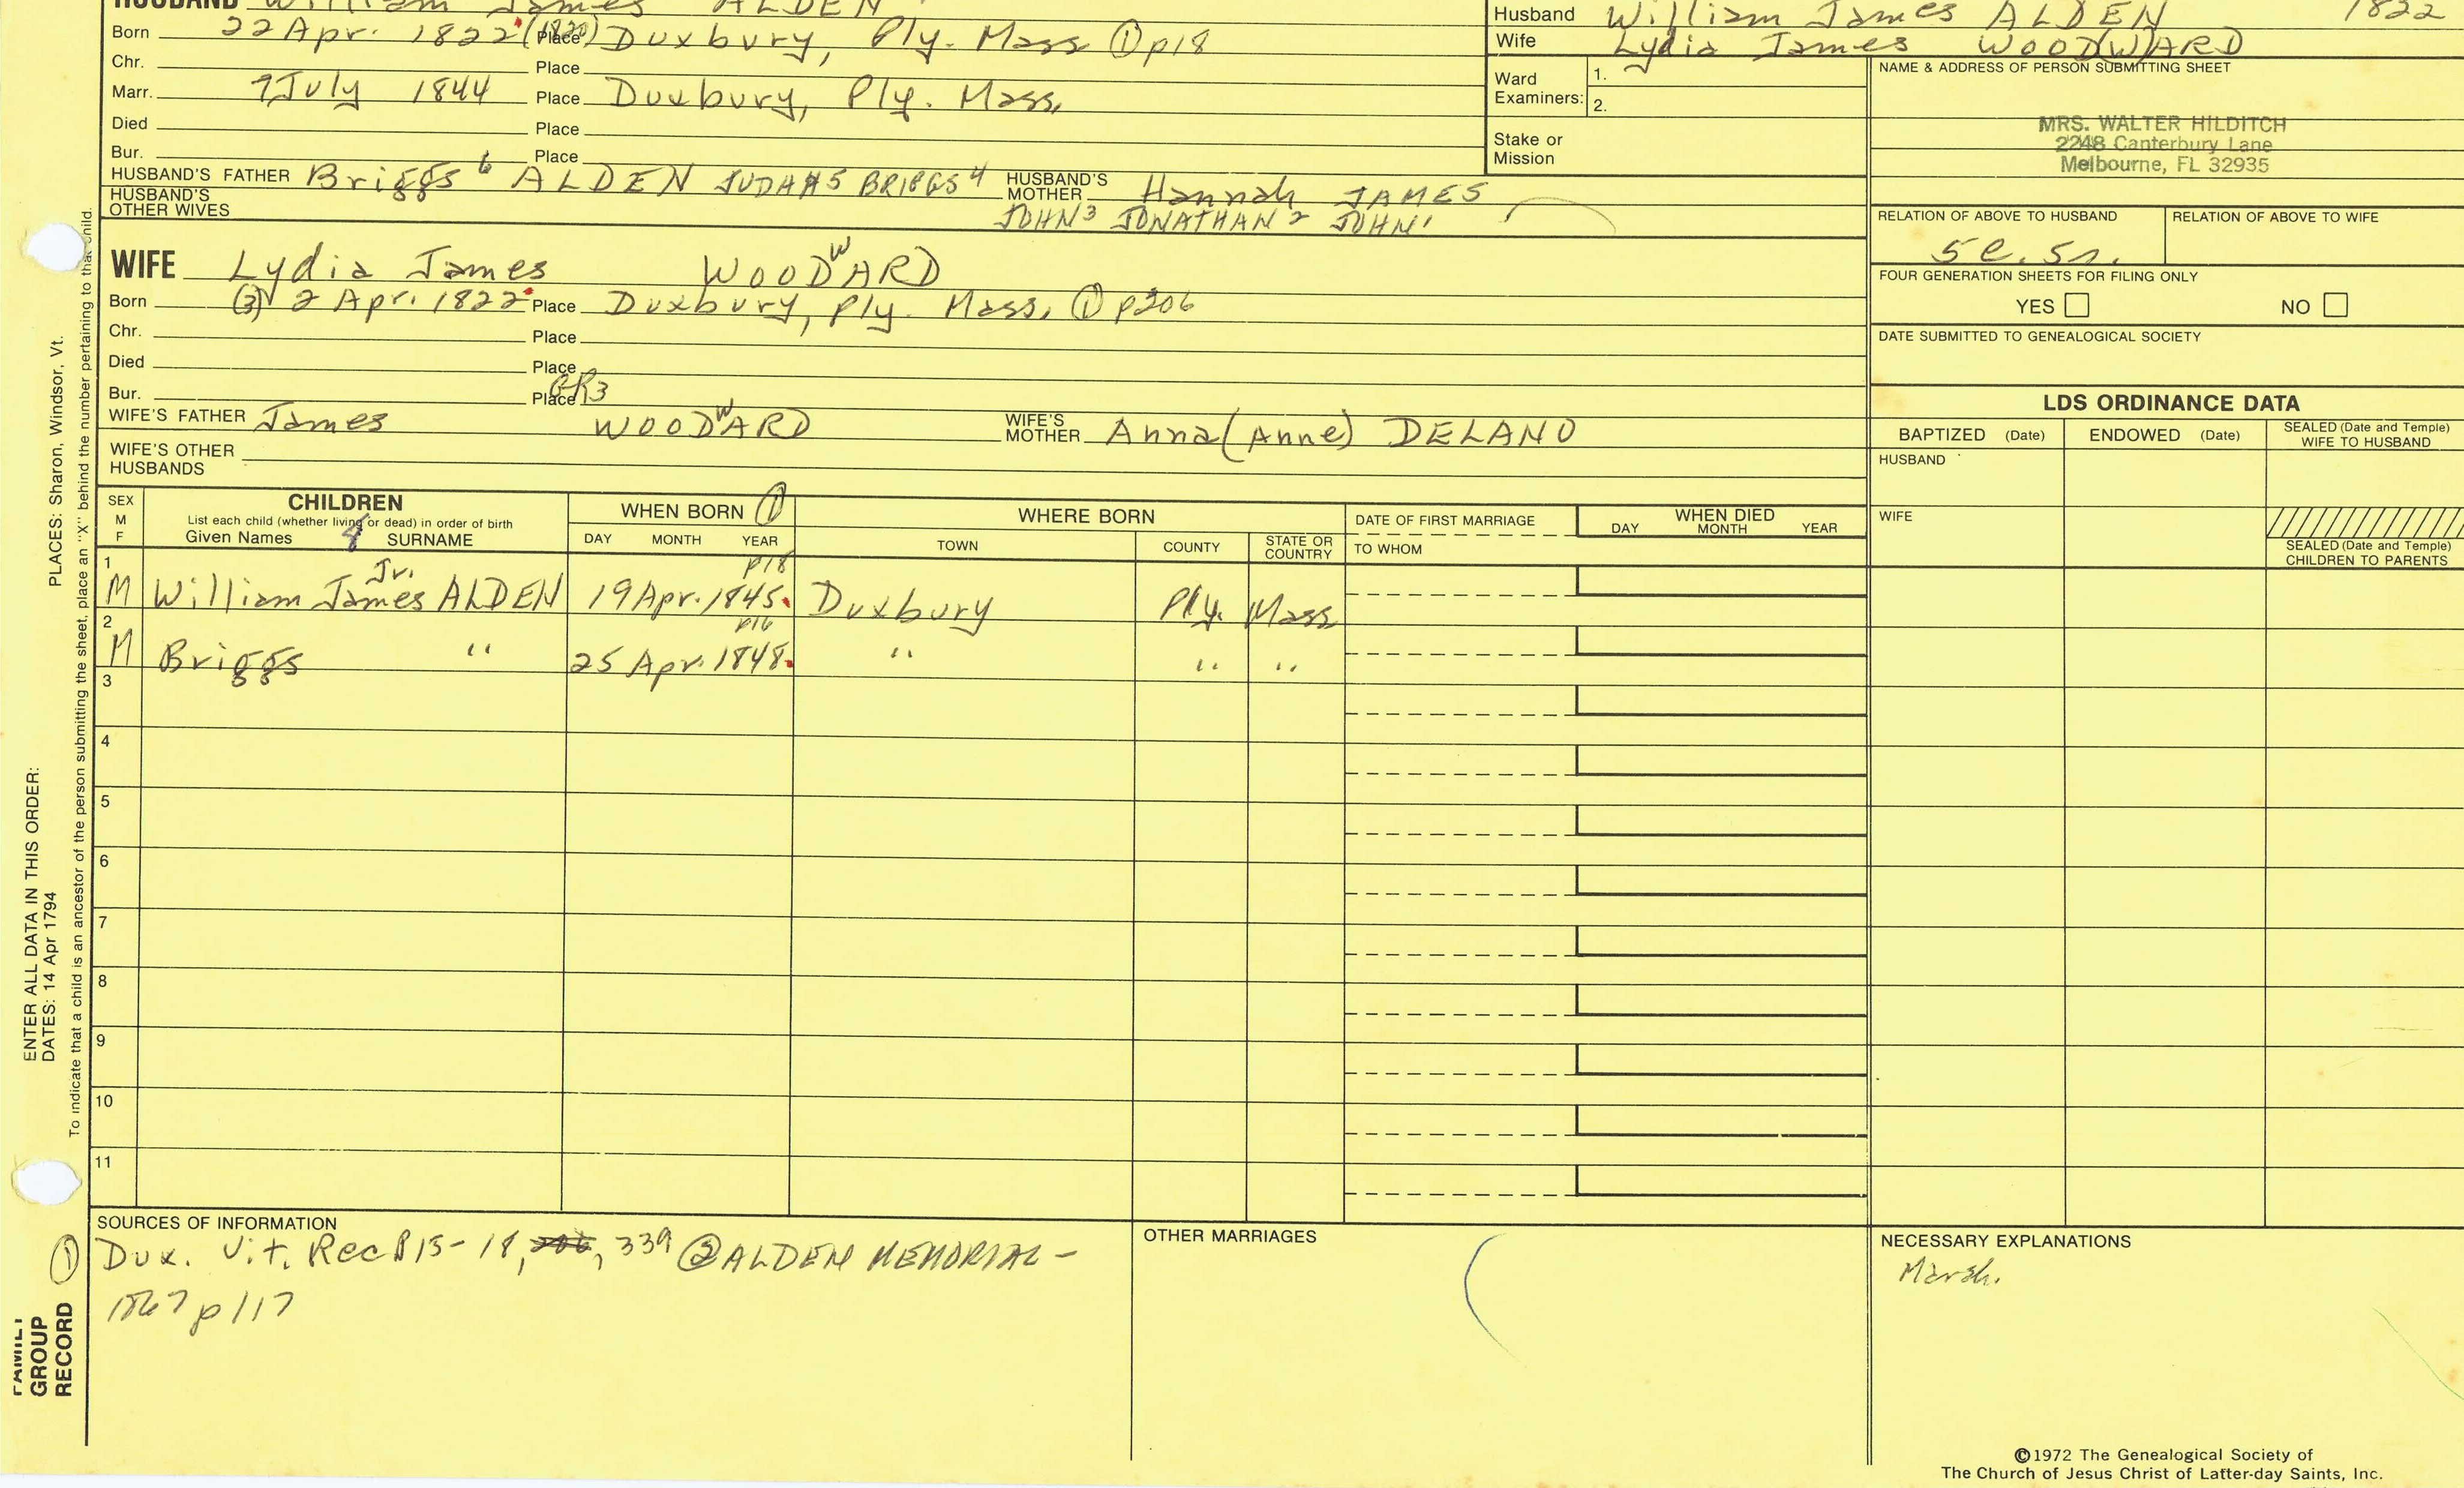 HUSBAND William James ALDEN
Born 22 Apr. 1822 (1820) Place Duxbury, Ply. Mass ① p18
Chr. Place
Marr. 7 July 1844 Place Duxbury, Ply. Mass,
Died Place
Bur. Place
HUSBAND'S FATHER Briggs 6 ALDEN JUDAH 5 BRIGGS 4 HUSBAND'S MOTHER Hannah JAMES
HUSBAND'S OTHER WIVES JOHN 3 JONATHAN 2 JOHN 1
Husband William James ALDEN 1822
Wife Lydia James WOOD(W)ARD
Ward Examiners: 1.
2.
Stake or Mission
NAME & ADDRESS OF PERSON SUBMITTING SHEET
MRS. WALTER HILDITCH
2248 Canterbury Lane
Melbourne, FL 32935
RELATION OF ABOVE TO HUSBAND RELATION OF ABOVE TO WIFE
FOUR GENERATION SHEETS FOR FILING ONLY
YES NO
DATE SUBMITTED TO GENEALOGICAL SOCIETY
WIFE Lydia James WOODWARD
Born (3) 2 Apr. 1822 Place Duxbury, Ply. Mass, ① p206
Chr. Place
Died Place
Bur. Place GR3
WIFE'S FATHER James WOODWARD WIFE'S MOTHER Anna (Anne) DELANO
WIFE'S OTHER HUSBANDS
LDS ORDINANCE DATA
BAPTIZED (Date) ENDOWED (Date) SEALED (Date and Temple) WIFE TO HUSBAND
HUSBAND
WIFE
SEALED (Date and Temple) CHILDREN TO PARENTS
SEX M F
CHILDREN
List each child (whether living or dead) in order of birth
Given Names SURNAME
WHEN BORN ①
DAY MONTH YEAR
WHERE BORN
TOWN COUNTY STATE OR COUNTRY
DATE OF FIRST MARRIAGE
TO WHOM
WHEN DIED
DAY MONTH YEAR
1 M William James Jr. ALDEN 19 Apr. 1845 p18 Duxbury Ply. Mass
2 M Briggs " 25 Apr. 1848 p16 " " "
3
4
5
6
7
8
9
10
11
SOURCES OF INFORMATION
① Dux. Vit. Rec P15-18, 206, 339 ② ALDEN MEMORIAL -
1867 p 117
OTHER MARRIAGES
NECESSARY EXPLANATIONS
Marsh.
©1972 The Genealogical Society of
The Church of Jesus Christ of Latter-day Saints, Inc.
PLACES: Sharon, Windsor, Vt.
ENTER ALL DATA IN THIS ORDER:
DATES: 14 Apr 1794
To indicate that a child is an ancestor of the person submitting the sheet, place an "X" behind the number pertaining to that child.
FAMILY
GROUP
RECORD